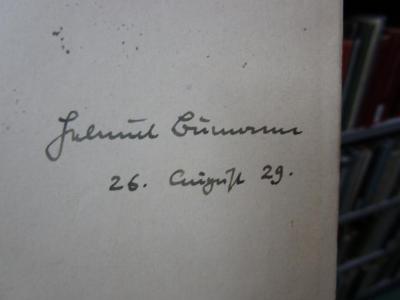 Helmut
26. August 29.